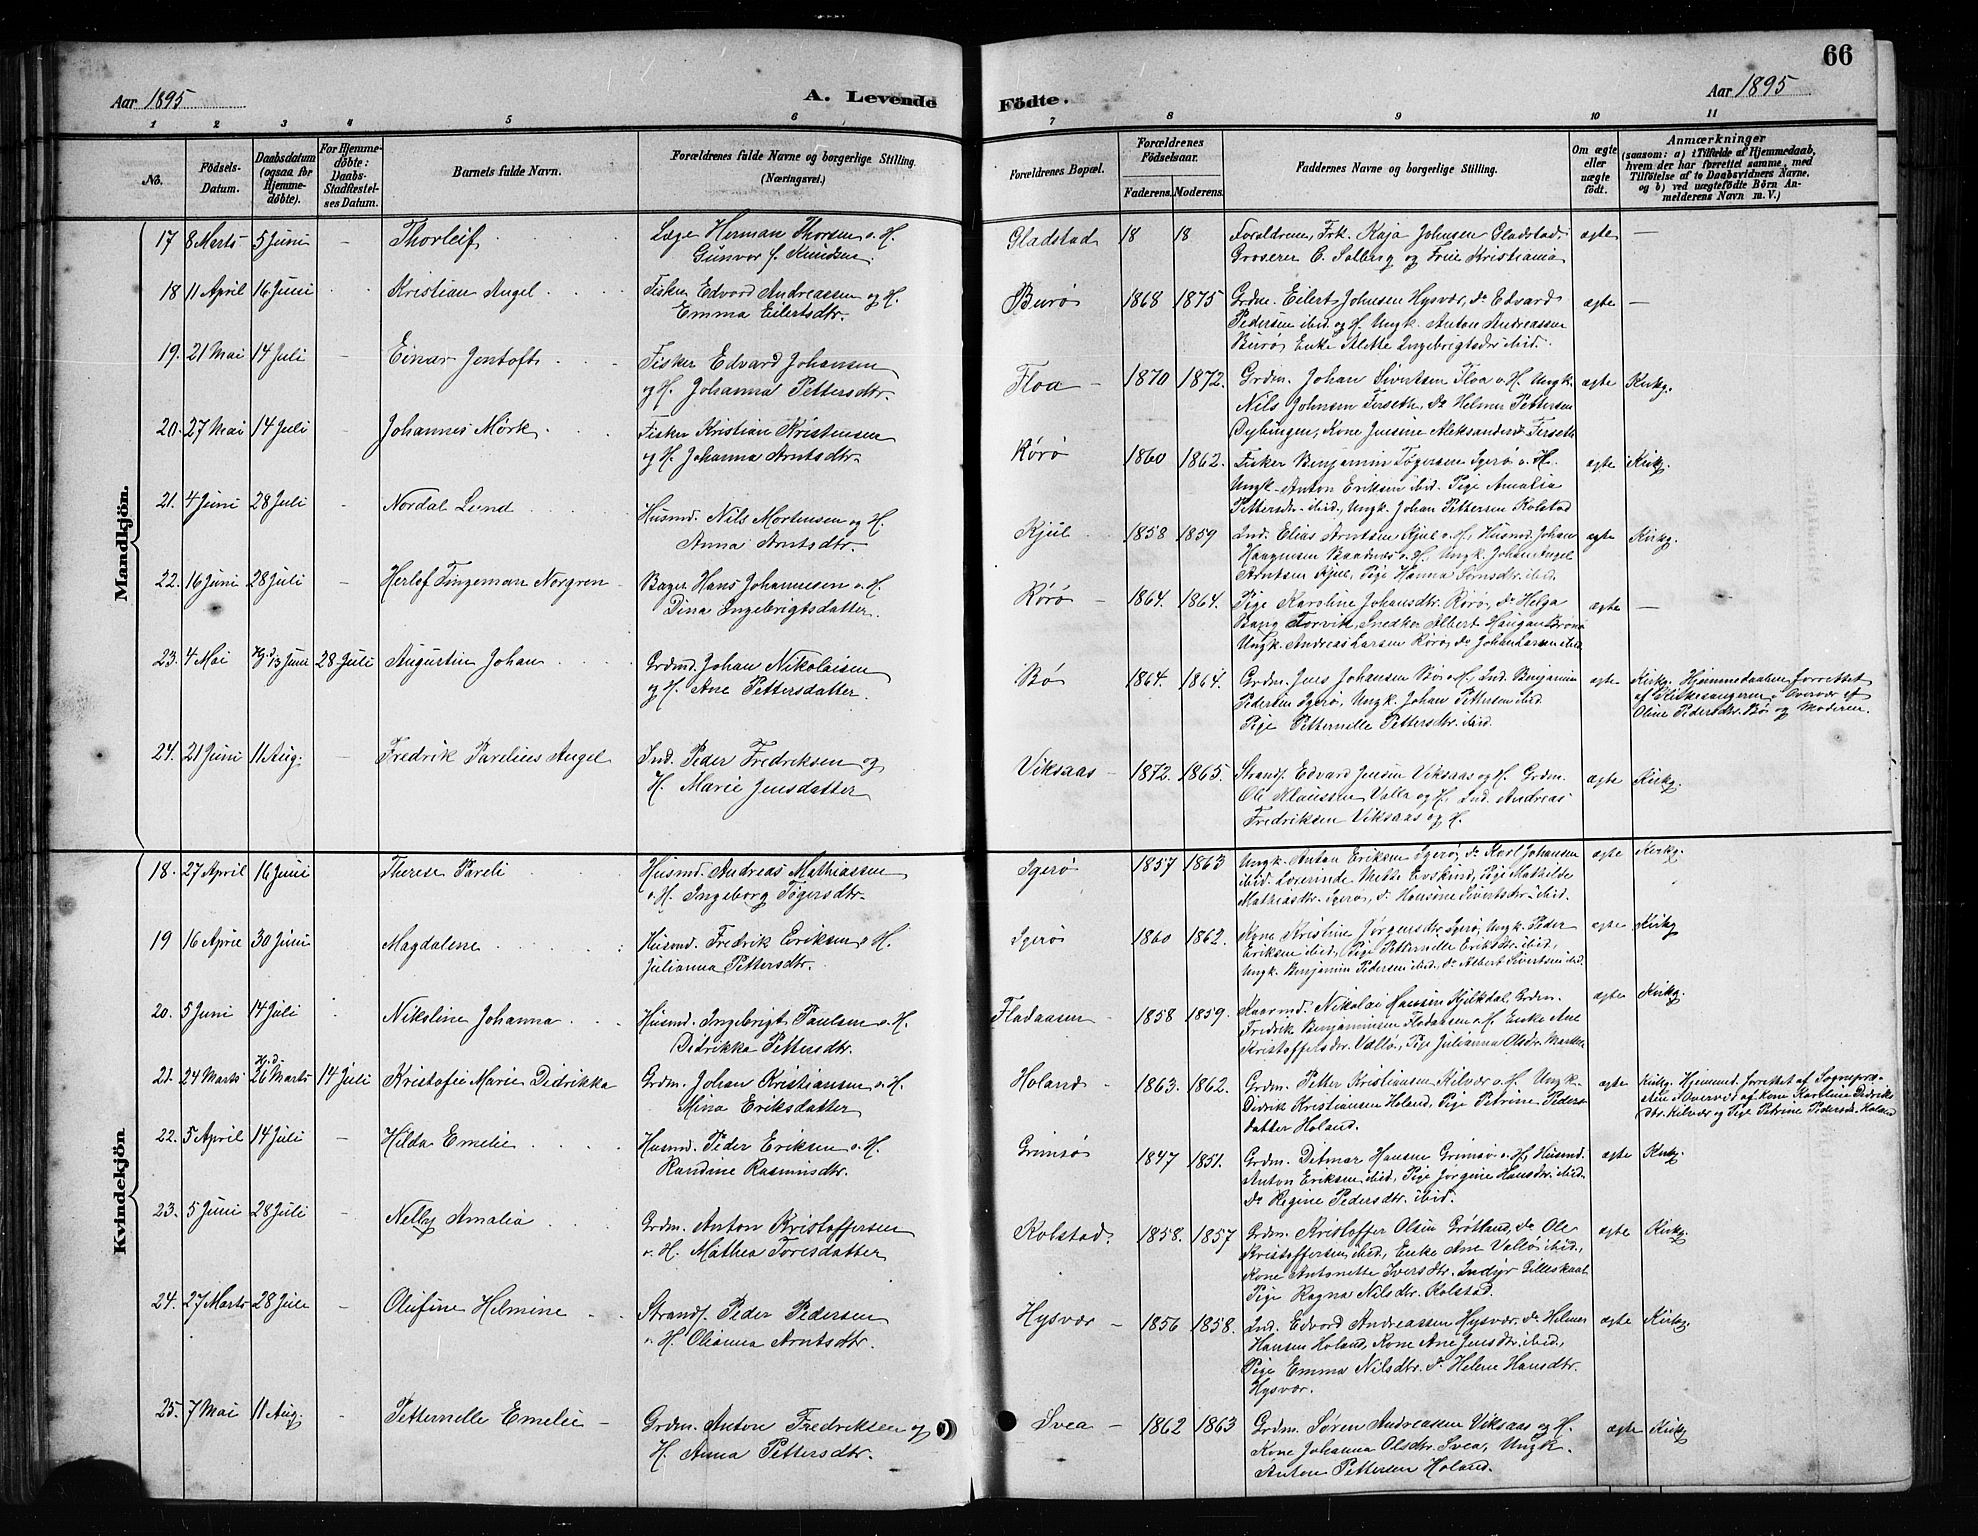 66
Aar 1895
A. Levende Födte.
Aar 1895
1 2 3 4 5 6 7 8 9 10 11
No.
Födsels-
Datum.
Daabsdatum
(ogsaa for
Hjemme-
döbte).
For Hjemme-
döbte:
Daabs-
Stadfæstel-
ses Datum.
Barnets fulde Navn.
Forældrenes fulde Navne og borgerlige Stilling.
(Næringsvei.)
Forældrenes Bopæl.
Forældrenes
Födselsaar.
Faderens. Moderens.
Faddernes Navne og borgerlige Stilling.
Om ægte
eller
uægte
födt.
Anmærkninger
(saasom: a) i Tilfælde af Hjemmedaab,
hvem der har forrettet samme, med
Tilföielse af to Daabsvidners Navne,
og b) ved uægtefödte Börn An-
melderens Navn m. V.)
Mandkjön.
17 8 Marts 5 Juni - Thorleif
Læge Herman Thorsen o. H.
Gunvor f. Knudsen.
Gladstad 18 18
Forældrene, Frk. Kaja Johnsen Gladstad,
Groserer C. Solberg og Frue Kristiania
ægte -
18 11 April 16 Juni Kristian Angel
Fisker Edvard Andreassen og H.
Emma Eilertsdtr.
Burø 1868 1875
Grdm. Eilert Johnsen Hysvær, do Edvard
Pedersen ibid og H. Ungk. Anton Andreassen
Burø Enke Alette Ingebrigtsdtr ibid.
ægte -
19. 21 Mai 14 Juli - Einar Jentoft
Fisker Edvard Johansen
og H. Johanna Pettersdtr.
Floa - 1870 1872.
Grdm. Johan Sivertsen Floa o. H. Ungk.
Nils Johnsen Forseth, do Helmer Pettersen
Dybingen, Kone Jensine Aleksandersd. Forseth
ægte Kirkg.
20. 27 Mai 14 Juli - Johannes Mörk
Fisker Kristian Kristensen
og H. Johanna Arntsdtr.
Rørø 1860 1862.
Fisker Benjamin Tøgersen Igerø o. H.
Ungk. Anton Eriksen ibid. Pige Amalia
Pettersdtr ibid, Ungk. Johan Pettersen Kolstad
ægte Kirkg.
21. 4 Juni 28 Juli - Nordal Lund
Husmd. Nils Mortensen og H.
Anna Arntsdtr.
Kjul - 1858 1859
Ind. Elias Arntsen Kjul o. H. Husmd. Johan
Haagensen Baadnæs o. H. Ungk. Johan Angel
Arntsen Kjul, Pige Hanna Sørnsdtr. ibid.
ægte Kirkg.
22. 16 Juni 28 Juli - Herlof Tingeman Norgren
Bager Hans Johannesen o. H.
Dina Ingebrigtsdatter.
Rørø - 1864. 1864.
Pige Karoline Johansdtr. Rørø, do Helga
Bang Torvik, Snedker Albert Haugan Brønø
Ungk. Andreas Larsen Rørø, do Johan Larsen ibid
ægte -
23. 4 Mai Hjd 13 Juni 28 Juli Augustin Johan
Grdmd. Johan Nikolaisen
og H. Ane Pettersdatter.
Bø 1864. 1864.
Grdm. Jens Johansen Bø o. H., Ind. Benjamin
Pedersen Igerø, Ungk. Johan Pettersen ibid
Pige Petternelle Pettersdtr. ibid.
ægte Kirkg. Hjemmedaaben forrettet
af Kirkesangeren i Overvær af
Oline Pedersdtr. Bø og Moderen.
24. 21 Juni 11 Aug. - Fredrik Parelius Angel
Ind. Peder Fredriksen og
H. Marie Jensdatter
Viksaas - 1872. 1865.
Strands. Edvard Jensen Viksaas og H. Grdm.
Ole Klaussen Valla og H., Ind. Andreas
Fredriksen Viksaas og H.
ægte Kirkg.
Kvindekjön
18. 27 April 16 Juni Therese Pareli
Husmd. Andreas Mathiassen
o. H. Ingeborg Tøgersdtr.
Igerø 1857 1863
Ungk. Anton Eriksen Igerø, do Karl Johansen
ibid. Lærerinde Mette Evskind, Pige Mathilde
Mathiasdtr. Igerø, do Hansine Sivertsdtr. ibid.
ægte Kirkg.
19 16 April 30 Juni Magdalene
Husmd. Fredrik Eriksen o. H.
Julianna Pettersdtr.
Igerø 1860 1862.
Kone Kristine Jørgensdtr. Igerø, Ungk. Peder
Eriksen ibid., Pige Petternelle Eriksdtr. ibid.,
Ungk. Benjamin Pedersen ibid., do Albert Sivertsen ibid.
ægte Kirkg
20. 5 Juni 14 Juli Nikoline Johanna
Husmd. Ingebrigt Paulsen o. H.
Didrikka Pettersdtr.
Fladaasen - 1858 1859.
Kaarmd. Nikolai Hansen Kjelkdal, Grdm.
Fredrik Benjaminsen Fladaasen o. H. Enke Ane
Kristoffersdtr. Vallø, Pige Julianna Olsdtr. Marken
ægte Kirkg.
21. 24 Marts Hjd. 26 Marts 14 Juli Kristofie Marie Didrikka
Grdm. Johan Kristiansen o. H.
Mina Eriksdatter
Holand - 1863. 1862.
Grdm. Petter Kristiansen Kilvær o. H. Ungk.
Didrik Kristiansen Holand, Pige Petrine Peders
datter Holand.
ægte Kirkg. Hjemmed. forrettet af Sognepræ-
sten i Overvær af Kone Karoline Didriks
dtr. Kilvær og Pige Petrine Pedersd. Holand
22. 5 April 14 Juli - Hilda Emelie
Husmd. Peder Eriksen o. H.
Randine Rasmusdtr.
Grimsø 1847 1851.
Grdm. Ditmar Hansen Grimsø o. H., Husmd.
Anton Eriksen ibid, Pige Jørgine Hansdtr. ibid.
do Regine Pedersdtr. ibid.
ægte Kirkg.
23. 5 Juni 28 Juli Nelly Amalia
Grdm. Anton Kristoffersen
o. H. Mathea Toresdatter
Kolstad. 1858. 1857
Grdm. Kristoffer Olsen Grøtland, do Ole
Kristoffersen ibid, Enke Ane Vallø ibid.,
Kone Antonette Iversdtr. Indyr Gilleskaal
Pige Ragna Nilsdtr. Kolstad.
ægte Kirkg.
24. 27 Marts 28 Juli - Olufine Helmine
Strands. Peder Pedersen
o. H. Olianna Arntsdtr.
Hysvær - 1856 1858.
Ind. Edvard Andreassen Hysvær, do Helmer
Hansen Holand, Kone Ane Jensdtr. ibid.,
Pige Emma Nilsdtr. do Helene Hansdtr.
Hysvær.
ægte Kirkg.
25. 7 Mai 11 Aug. - Petternelle Emelie
Grdm. Anton Fredriksen og
H. Anna Pettersdtr.
Svea - 1862 1863
Grdm. Søren Andreassen Viksaas og H.
Kone Johanna Olsdtr. Svea, Ungk.
Anton Pettersen Holand.
ægte Kirkg